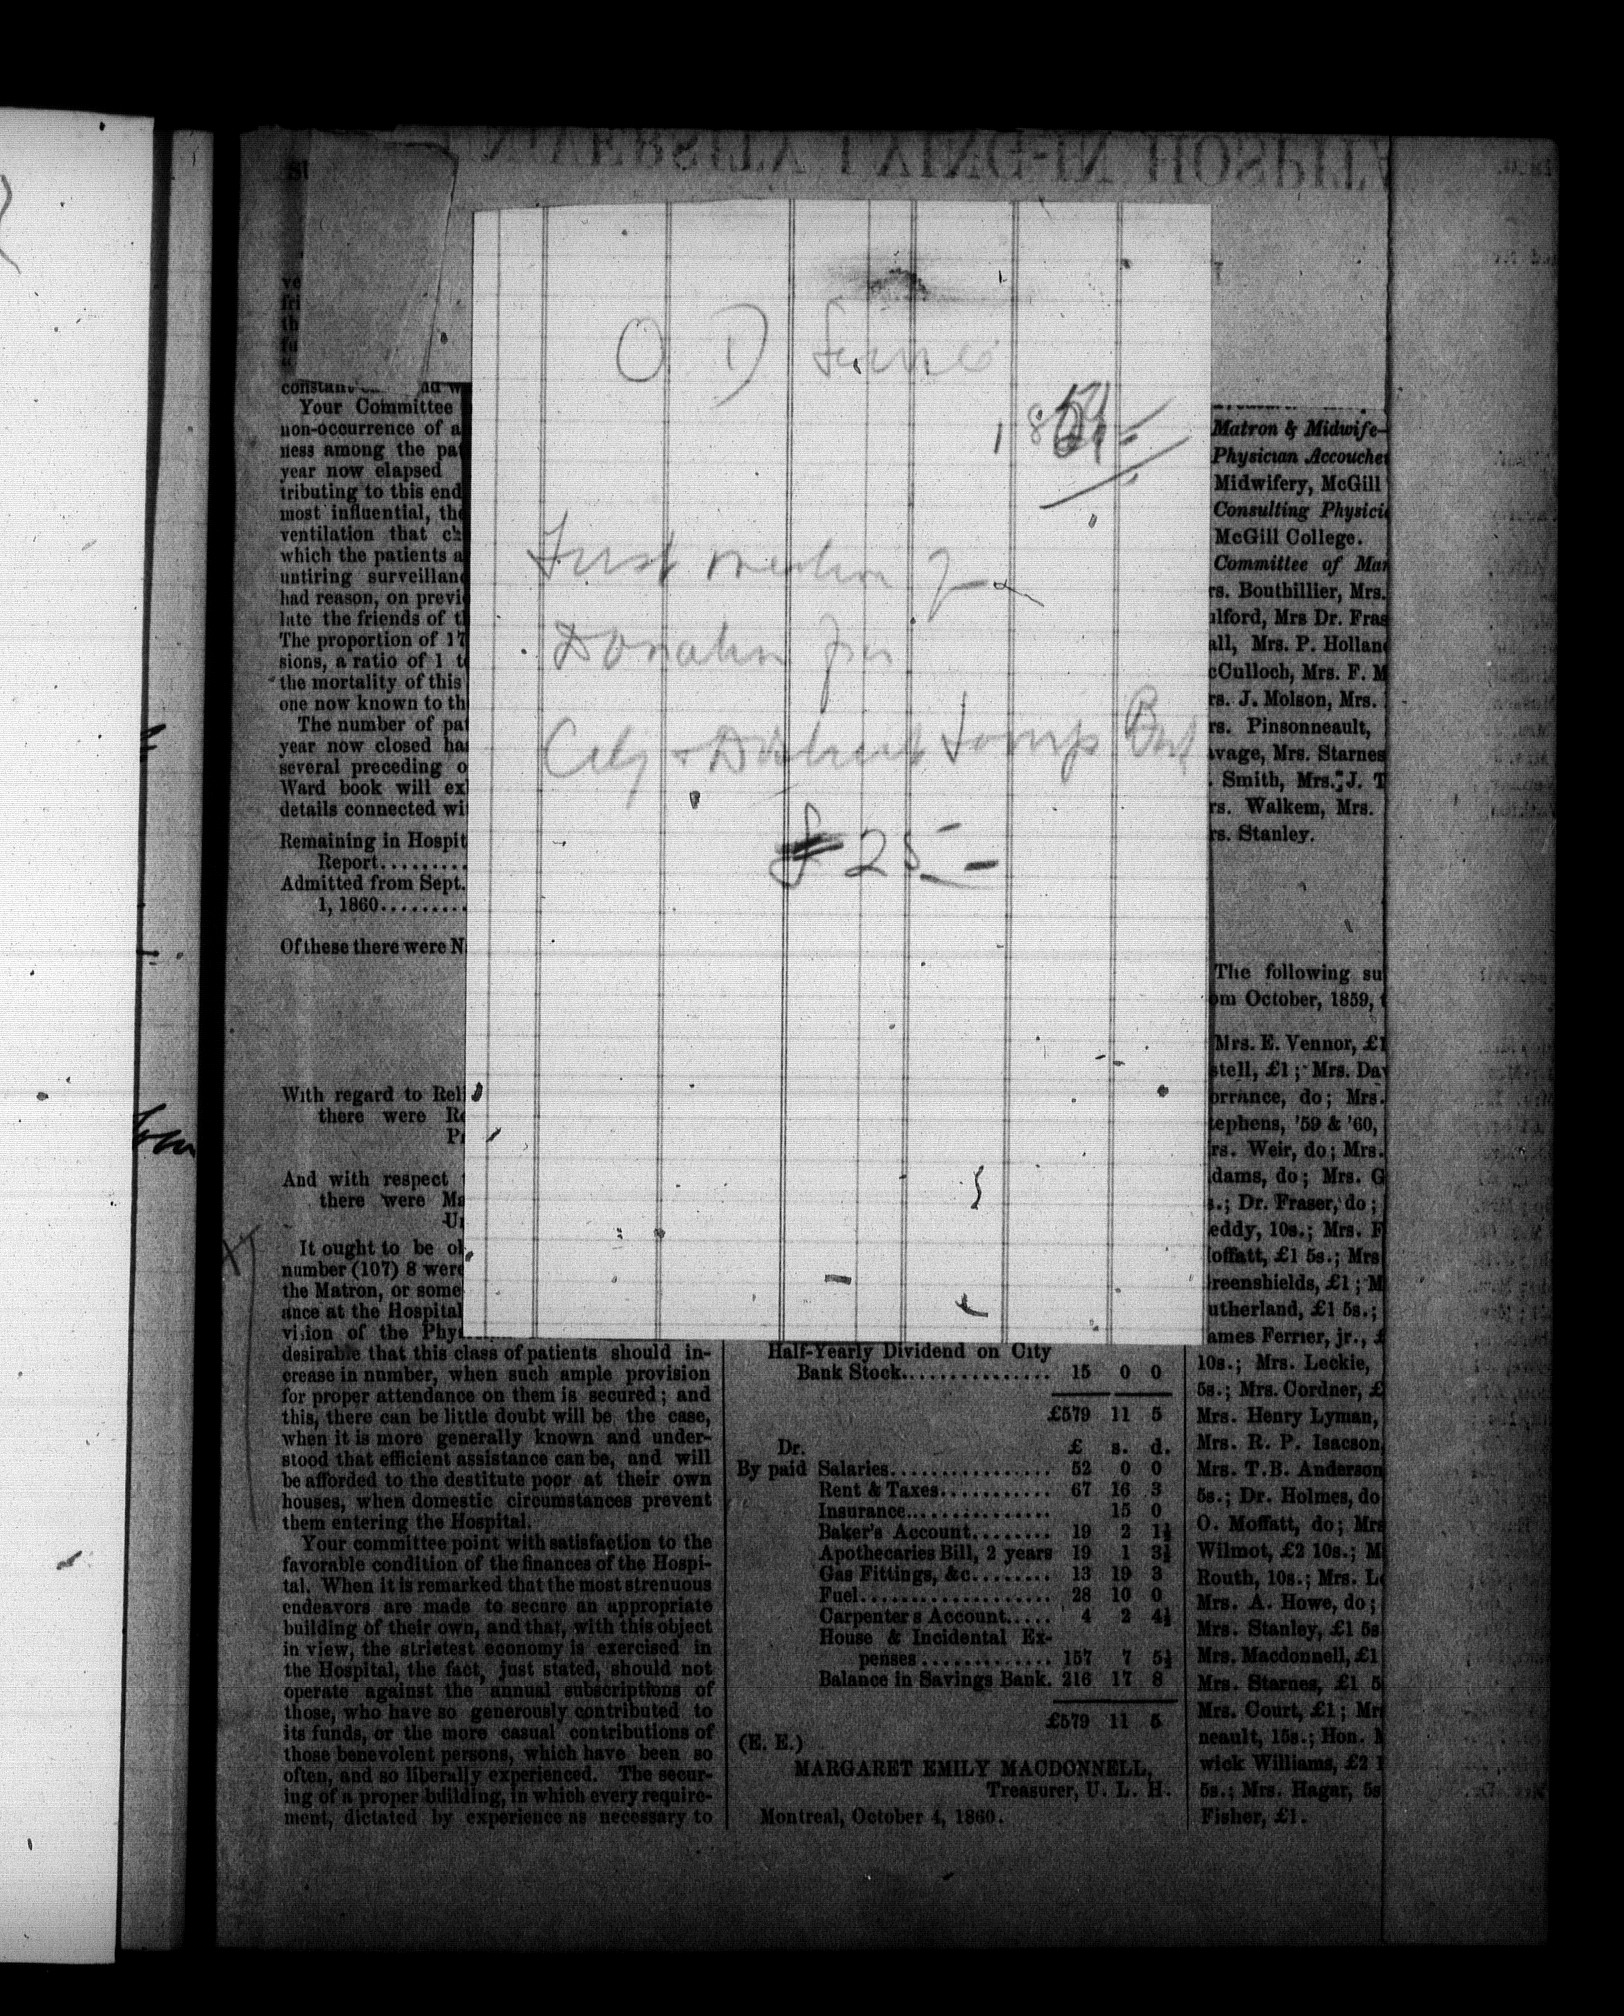 UNIVERSITY LYING-IN HOSPITAL
constant
Your Committee
non-occurrence of a
ness among the pat
year now elapsed
tributing to this end
most influential, the
ventilation that
which the patients a
untiring surveillanc
had reason, on previ
late the friends of t
The proportion of 17
sions, a ratio of 1 t
the mortality of this
one now known to th
The number of pat
year now closed ha
several preceding o
Ward book will ex
details connected wi
Remaining in Hospit
Report.........
Admitted from Sept.
1, 1860.........
Of these there were N
With regard to Reli
there were R
P
And with respect
there were Ma
Un
It ought to be ob
number (107) 8 were
the Matron, or some
ance at the Hospital
vision of the Phy
desirable that this class of patients should in-
crease in number, when such ample provision
for proper attendance on them is secured; and
this, there can be little doubt will be the case,
when it is more generally known and under-
stood that efficient assistance can be, and will
be afforded to the destitute poor at their own
houses, when domestic circumstances prevent
them entering the Hospital.
Your committee point with satisfaction to the
favorable condition of the finances of the Hospi-
tal. When it is remarked that the most strenuous
endeavors are made to secure an appropriate
building of their own, and that, with this object
in view, the strictest economy is exercised in
the Hospital, the fact, just stated, should not
operate against the annual subscriptions of
those, who have so generously contributed to
its funds, or the more casual contributions of
those benevolent persons, which have been so
often, and so liberally experienced. The secur-
ing of a proper building, in which every require-
ment, dictated by experience as necessary to
O. D
First mention of
Donation from
City & District Savings Bank
£ 25 -
Half-Yearly Dividend on City
Bank Stock............... 15 0 0
£579 11 5
Dr. £ s. d.
By paid Salaries................ 52 0 0
Rent & Taxes........... 67 16 3
Insurance............... 15 0
Baker's Account........ 19 2 1½
Apothecaries Bill, 2 years 19 1 3½
Gas Fittings, &c........ 13 19 3
Fuel................... 28 10 0
Carpenter's Account..... 4 2 4½
House & Incidental Ex-
penses ............. 157 7 5½
Balance in Savings Bank. 216 17 8
£579 11 5
(E. E.)
MARGARET EMILY MACDONNELL,
Treasurer, U. L. H.
Montreal, October 4, 1860.
Matron & Midwife—
Physician Accouche
Midwifery, McGill
Consulting Physici
McGill College.
Committee of Ma
rs. Bouthillier, Mrs.
ulford, Mrs Dr. Fras
all, Mrs. P. Hollan
cCulloch, Mrs. F. M
rs. J. Molson, Mrs.
rs. Pinsonneault,
avage, Mrs. Starnes
. Smith, Mrs. J. T
rs. Walkem, Mrs.
rs. Stanley.
The following su
om October, 1859,
Mrs. E. Vennor, £1
stell, £1; Mrs. Da
orrance, do; Mrs.
tephens, '59 & '60,
rs. Weir, do; Mrs.
dams, do; Mrs. G
s.; Dr. Fraser, do;
eddy, 10s.; Mrs. F
offatt, £1 5s.; Mrs
reenshields, £1; M
utherland, £1 5s.;
ames Ferrier, jr., £
10s.; Mrs. Leckie,
5s.; Mrs. Cordner, £
Mrs. Henry Lyman,
Mrs. R. P. Isacson,
Mrs. T.B. Anderson
5s.; Dr. Holmes, do
O. Moffatt, do; Mrs
Wilmot, £2 10s.; M
Routh, 10s.; Mrs. L
Mrs. A. Howe, do;
Mrs. Stanley, £1 5s
Mrs. Macdonnell, £1
Mrs. Starnes, £1 5
Mrs. Court, £1; Mr
neault, 15s.; Hon. M
wick Williams, £2 1
5s.; Mrs. Hagar, 5s
Fisher, £1.